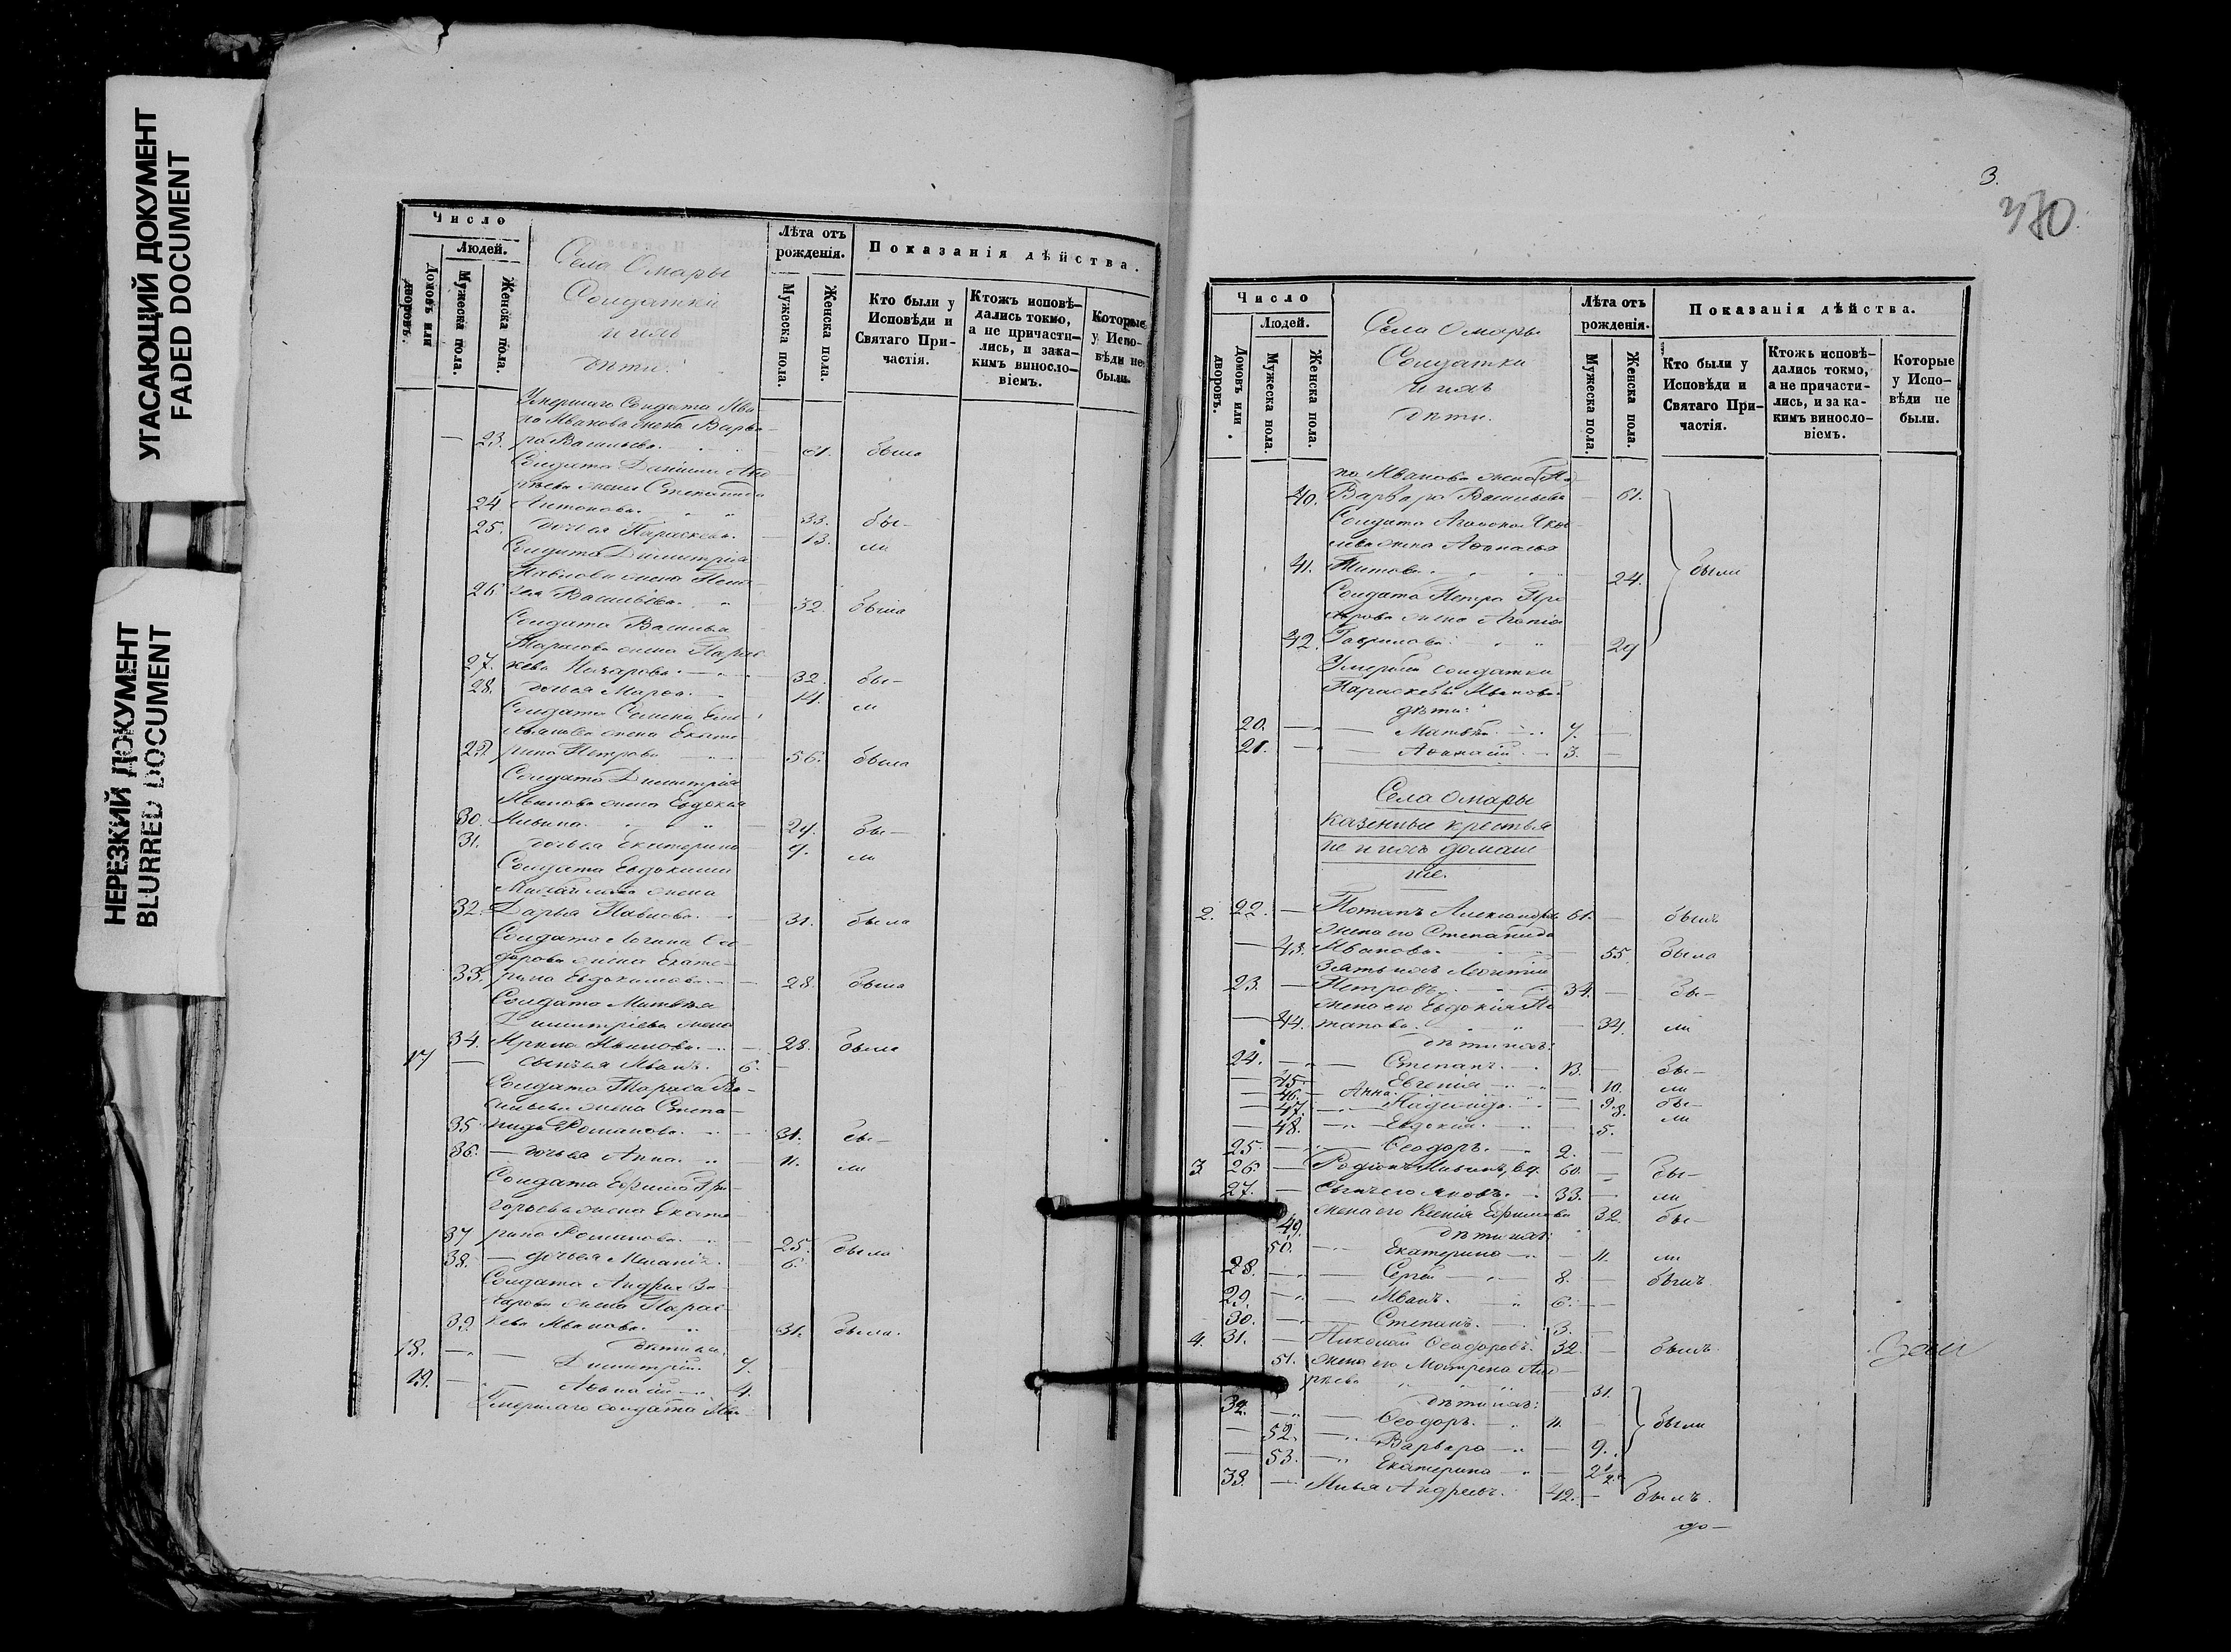 УГАСАЮЩИЙ ДОКУМЕНТ
FADED DOCUMENT
НЕРЕЗКИЙ ДОКУМЕНТ
BLURRED DOCUMENT
Число
Людей.
Домовъ или дворовъ.
Мужеска пола.
Женска пола.
Села Омары
Солдатки
и ихъ
дѣти.
Лѣта отъ рожденія.
Мужеска пола.
Женска пола.
Показанія дѣйства.
Кто были у Исповѣди и Святаго Причастія.
Ктожъ исповѣдались токмо, а не причастились, и за какимъ винословіемъ.
Которые у Исповѣди не были.
Умершаго Солдата
Иванова жена Варва-
23. ра Васильева. 61. была
Солдата Даніила
жена Степанида
24 Антонова. 33. бы-
25. дочь ея Параскева. 13. ли
Солдата Димитрія
Павлова жена
26 Васильева. 32. была
Солдата Василья
Тарасова жена Парас-
27. кева Назарова. 32. бы-
28. дочь ея Марѳа. 14. ли
Солдата Семена
жена Екате
29. рина Петрова 56. была
Солдата Димитрія
Иванова жена Евдокія
30. Ильина. 29. бы-
31. дочь ея Екатерина 7. ли
Солдата Евдокима
Михайлова жена
32. Дарья Павлова. 31. была
Солдата Логина Ѳео-
дорова жена Екате-
33. рина Евдокимова. 28. была
Солдата Матвѣя
Димитріева жена
34. Ирина Иванова. 28. была
17 сынъ ея Иванъ. 6.
Солдата Тараса Ва-
сильева жена Степа-
35. нида Романова. 31. бы-
36. дочь ея Анна. 11. ли
Солдата Ефима Гри-
горьева жена Екате-
37 рина Романова. 25. была
38. дочь ея Меланія. 6.
Солдата Андрея За-
харова жена Парас-
39. кева Иванова. 31. была.
дѣти ея:
18. Димитрій. 7.
19. Аѳанасій 4.
Умершаго солдата
3.
380
Число
Людей.
Домовъ или дворовъ.
Мужеска пола.
Женска пола.
Села Омары
Солдатки
и ихъ
дѣти.
Лѣта отъ рожденія.
Мужеска пола.
Женска пола.
Показанія дѣйства.
Кто были у Исповѣди и Святаго Причастія.
Ктожъ исповѣдались токмо, а не причастились, и за какимъ винословіемъ.
Которые у Исповѣди не были.
Иванова жена
40. Варвара Васильева 61.
Солдата Яков
лева жена
41. Титова. 24. были
Солдата Петра Про
хорова жена Агапія
42. Гаврилова. 29
Умершей солдатки
Параскевы Ивановой
дѣти:
20. Матвѣй 7.
21. Аѳанасій 3.
Села Омары
казенные крестья
не и ихъ домаш
ніе.
2. 22. Потапъ Александровъ 61. былъ
жена его Степанида
43. Иванова. 55. была
Зять ихъ Леонтій
23. Петровъ. 34. бы-
жена его Евдокія По
44. тапова. 34. ли
дѣти ихъ:
24. Степанъ. 13. бы-
45. Евгенія 10. ли
46. Анна. 9. бы-
47. Надежда. 8. ли
48. Евдокія. 5.
25. Ѳеодоръ. 2.
3 26. Родіонъ Ильинъ, вд. 60. бы-
27. сынъ его Яковъ. 33. ли
49. жена его Ксенія Ефимова 32. бы-
дѣти ихъ:
50. Екатерина 11. ли
28. Сергѣй 8. былъ
29. Иванъ. 6.
30. Степанъ. 3.
4. 31. Николай Ѳеодоровъ. 32. былъ.
51. жена его Матрена Анд
рѣева 31.
дѣти ихъ:
32. Ѳеодоръ. 11. были
52. Варвара 9.
53. Екатерина 2½.
33. Илья Андреевъ. 42. былъ.
до-